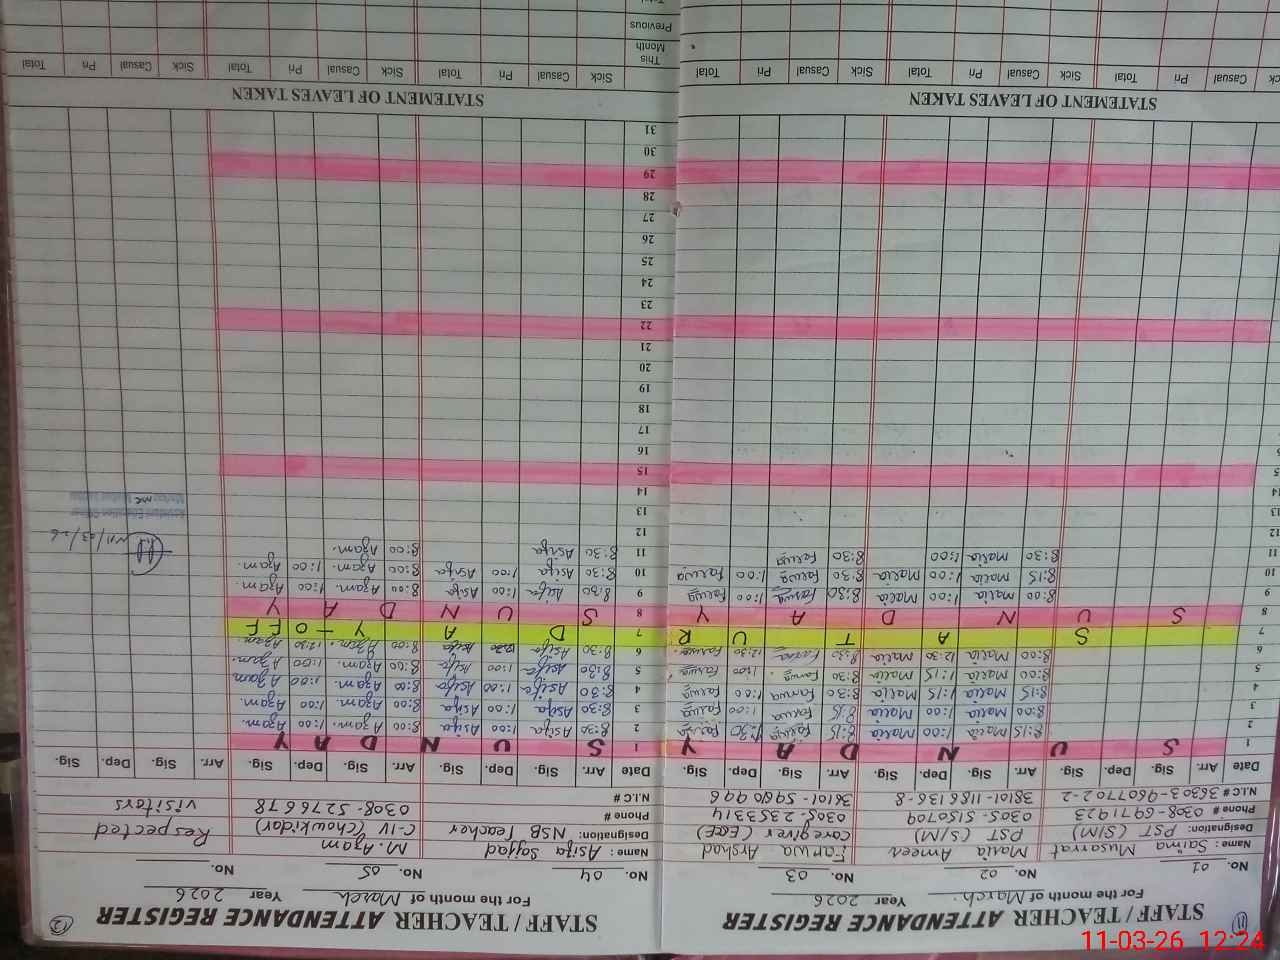 11
STAFF / TEACHER ATTENDANCE REGISTER
For the month of March. Year 2026
No. 01 No. 02 No. 03
Name : Saima Musarrat Maria Ameen Farwa Arshad
Designation: PST (S/M) PST (S/M) caregiver (ECE)
Phone # 0308-6971923 0305-5150709 0305-2353314
N.I.C # 36303-9607702-2 38101-1186136-8 36101-5980996
Date Arr. Sig. Dep. Sig. Arr. Sig. Dep. Sig. Arr. Sig. Dep. Sig.
1 S U N D A Y
2 8:15 Maria 1:00 Maria 8:15 Farwa 1:30 Farwa
3 8:00 Maria 1:00 Maria 8:15 Farwa 1:00 Farwa
4 8:15 Maria 1:15 Maria 8:30 Farwa 1:00 Farwa
5 8:00 Maria 1:15 Maria 8:30 Farwa 1:00 Farwa
6 8:00 Maria 12:30 Maria 8:30 Farwa 12:30 Farwa
7 S A T U R
8 S U N D A Y
9 8:00 Maria 1:00 Maria 8:30 Farwa 1:00 Farwa
10 8:15 Maria 1:00 Maria 8:30 Farwa 1:00 Farwa
11 8:30 Maria 1:00 8:30 Farwa
12
13
14
15
16
STATEMENT OF LEAVES TAKEN
Sick Casual Pri Total Sick Casual Pri Total Sick Casual Pri Total
12
STAFF / TEACHER ATTENDANCE REGISTER
For the month of March Year 2026
No. 04 No. 05 No.
Name : Asifa Sajjad M. Azam Respected
Designation: NSB Teacher C-IV (Chowkidar) visitors
Phone # 0308-5276678
N.I.C #
Date Arr. Sig. Dep. Sig. Arr. Sig. Dep. Sig. Arr. Sig. Dep. Sig.
1 S U N D A Y
2 8:30 Asifa 1:00 Asifa 8:00 Azam. 1:00 Azam.
3 8:30 Asifa 1:00 Asifa 8:00 Azam. 1:00 Azam.
4 8:30 Asifa 1:00 Asifa 8:00 Azam. 1:00 Azam
5 8:30 Asifa 1:00 Asifa 8:00 Azam. 1:00 Azam.
6 8:30 Asifa 12:30 Asifa 8:00 Azam. 12:30 Azam.
7 D A Y - O F F
8 S U N D A Y
9 8:30 Asifa 1:00 Asifa 8:00 Azam. 1:00 Azam.
10 8:30 Asifa 1:00 Asifa 8:00 Azam. 1:00 Azam.
11 8:30 Asifa 8:00 Azam. 11/03/26
12
13
14
15
16
17
18
19
20
21
22
23
24
25
26
27
28
29
30
31
STATEMENT OF LEAVES TAKEN
Sick Casual Pri Total Sick Casual Pri Total Sick Casual Pri Total
This Month
Previous
11-03-26 12:24